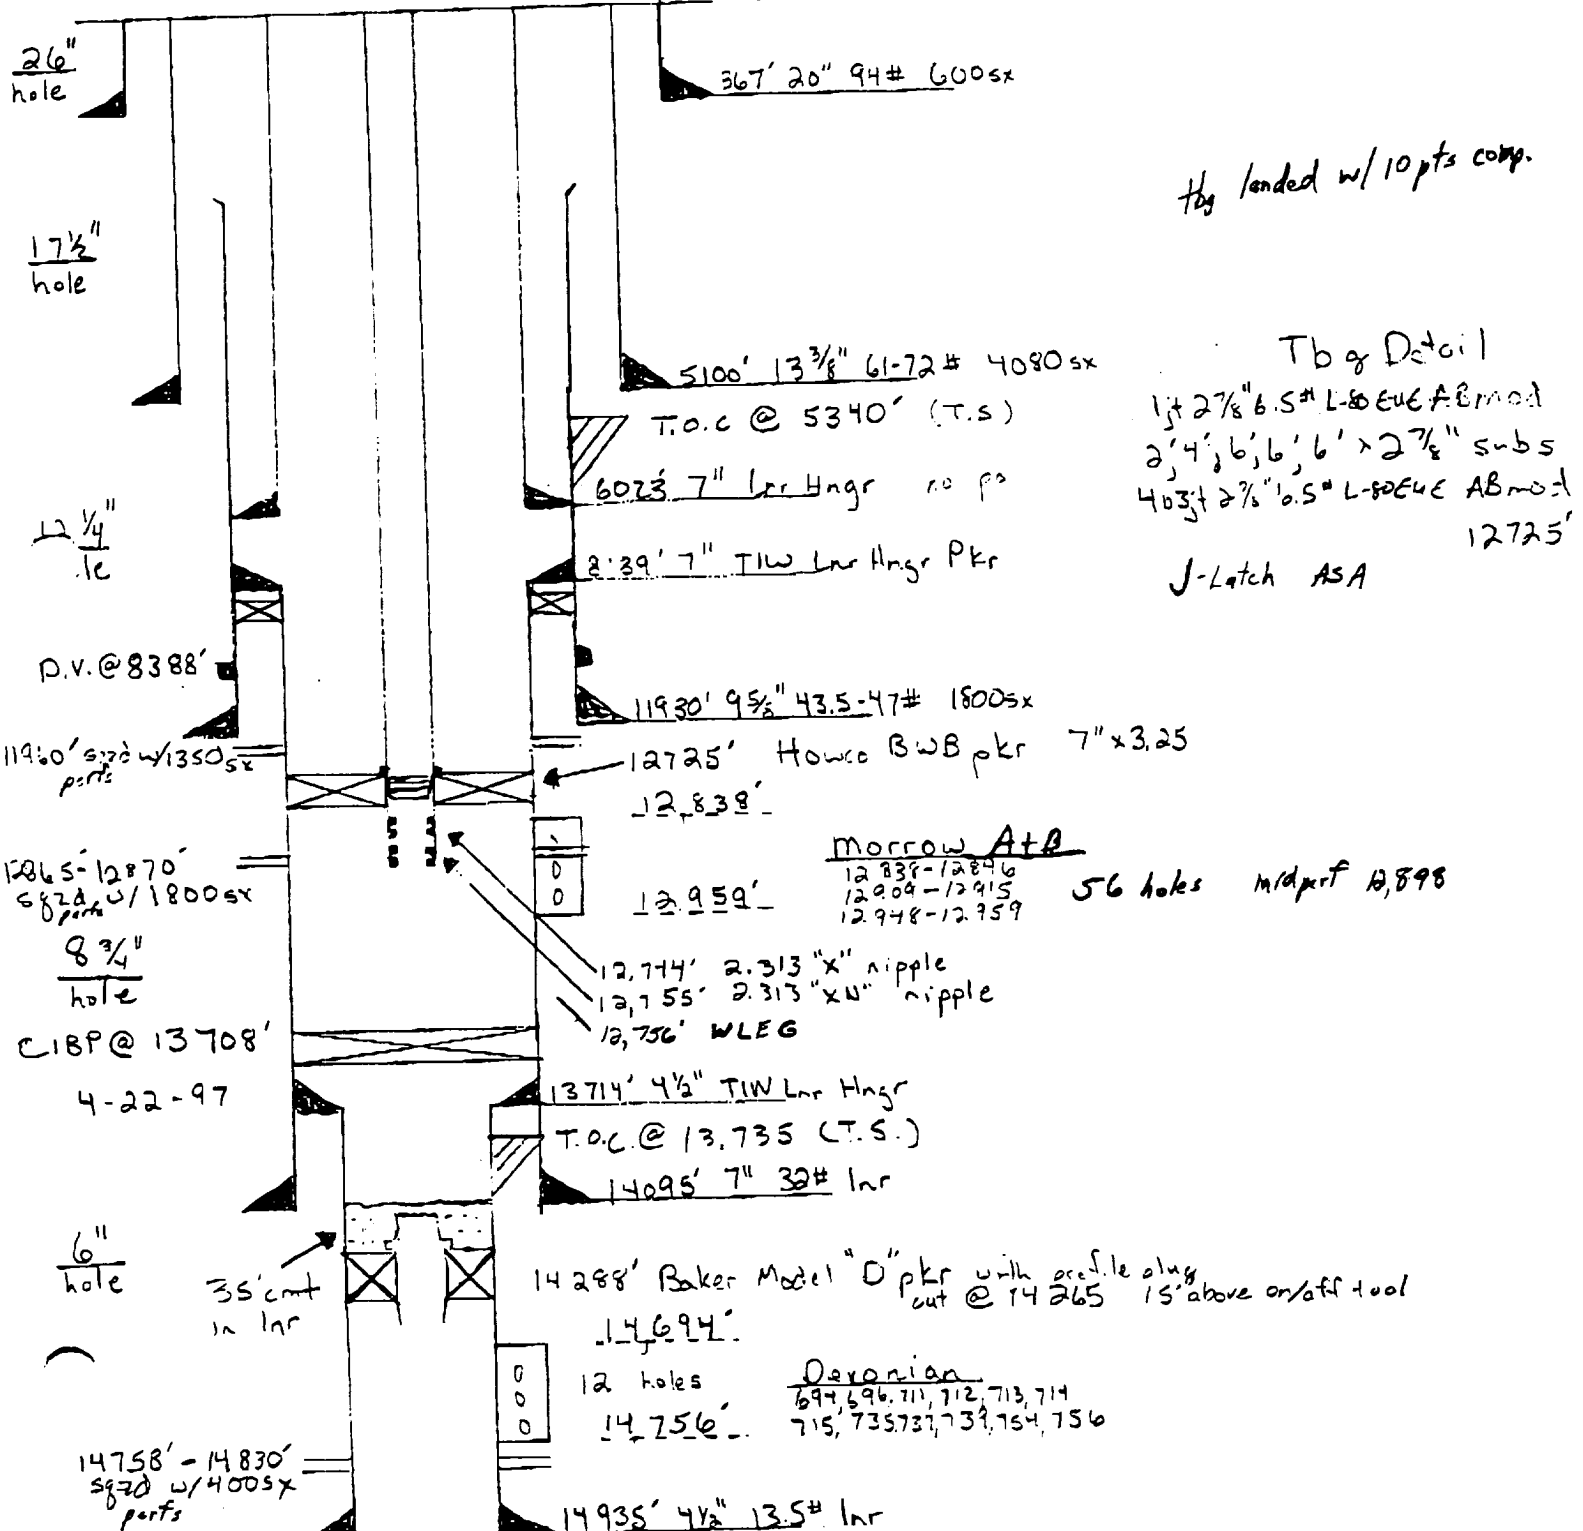 26"
hole
367' 20" 94# 600sx
tbg landed w/ 10 pts comp.
17½"
hole
5100' 13 3/8" 61-72# 4080sx
T.O.C @ 5340' (T.S)
6023' 7" Lnr Hngr no
Tbg Detail
1jt 2 7/8" 6.5# L-80 EUE ABmod
2', 4', 6', 6', 6' x 2 7/8" subs
403jt 2 7/8" 6.5# L-80 EUE ABmod
12725'
J-Latch ASA
12 ¼"
le
39' 7" TIW Lnr Hngr Pkr
D.V. @ 8388'
11930' 9 5/8" 43.5-47# 1800sx
11960' sqzd w/1350sx
perfs
12725' Howco BWB pkr 7" x 3.25
12,838'
12865'-12870'
sqzd w/1800sx
perfs
Morrow A+B
12838-12846
12909-12915
12948-12959
56 holes midperf 12,898
12959'
8 ¾"
hole
12,744' 2.313 "X" nipple
12,755' 2.313 "XN" nipple
12,756' WLEG
CIBP @ 13708'
4-22-97
13714' 4½" TIW Lnr Hngr
T.O.C. @ 13,735 (T.S.)
14095' 7" 32# lnr
6"
hole
35' cmt
in lnr
14288' Baker Model "D" pkr with profile plug
cut @ 14265 15' above on/off tool
14,694'
12 holes
Devonian
694, 696, 711, 712, 713, 714
715, 735, 737, 739, 754, 756
14,756'
14758' - 14830'
sqzd w/400sx
perfs
14935' 4½" 13.5# lnr